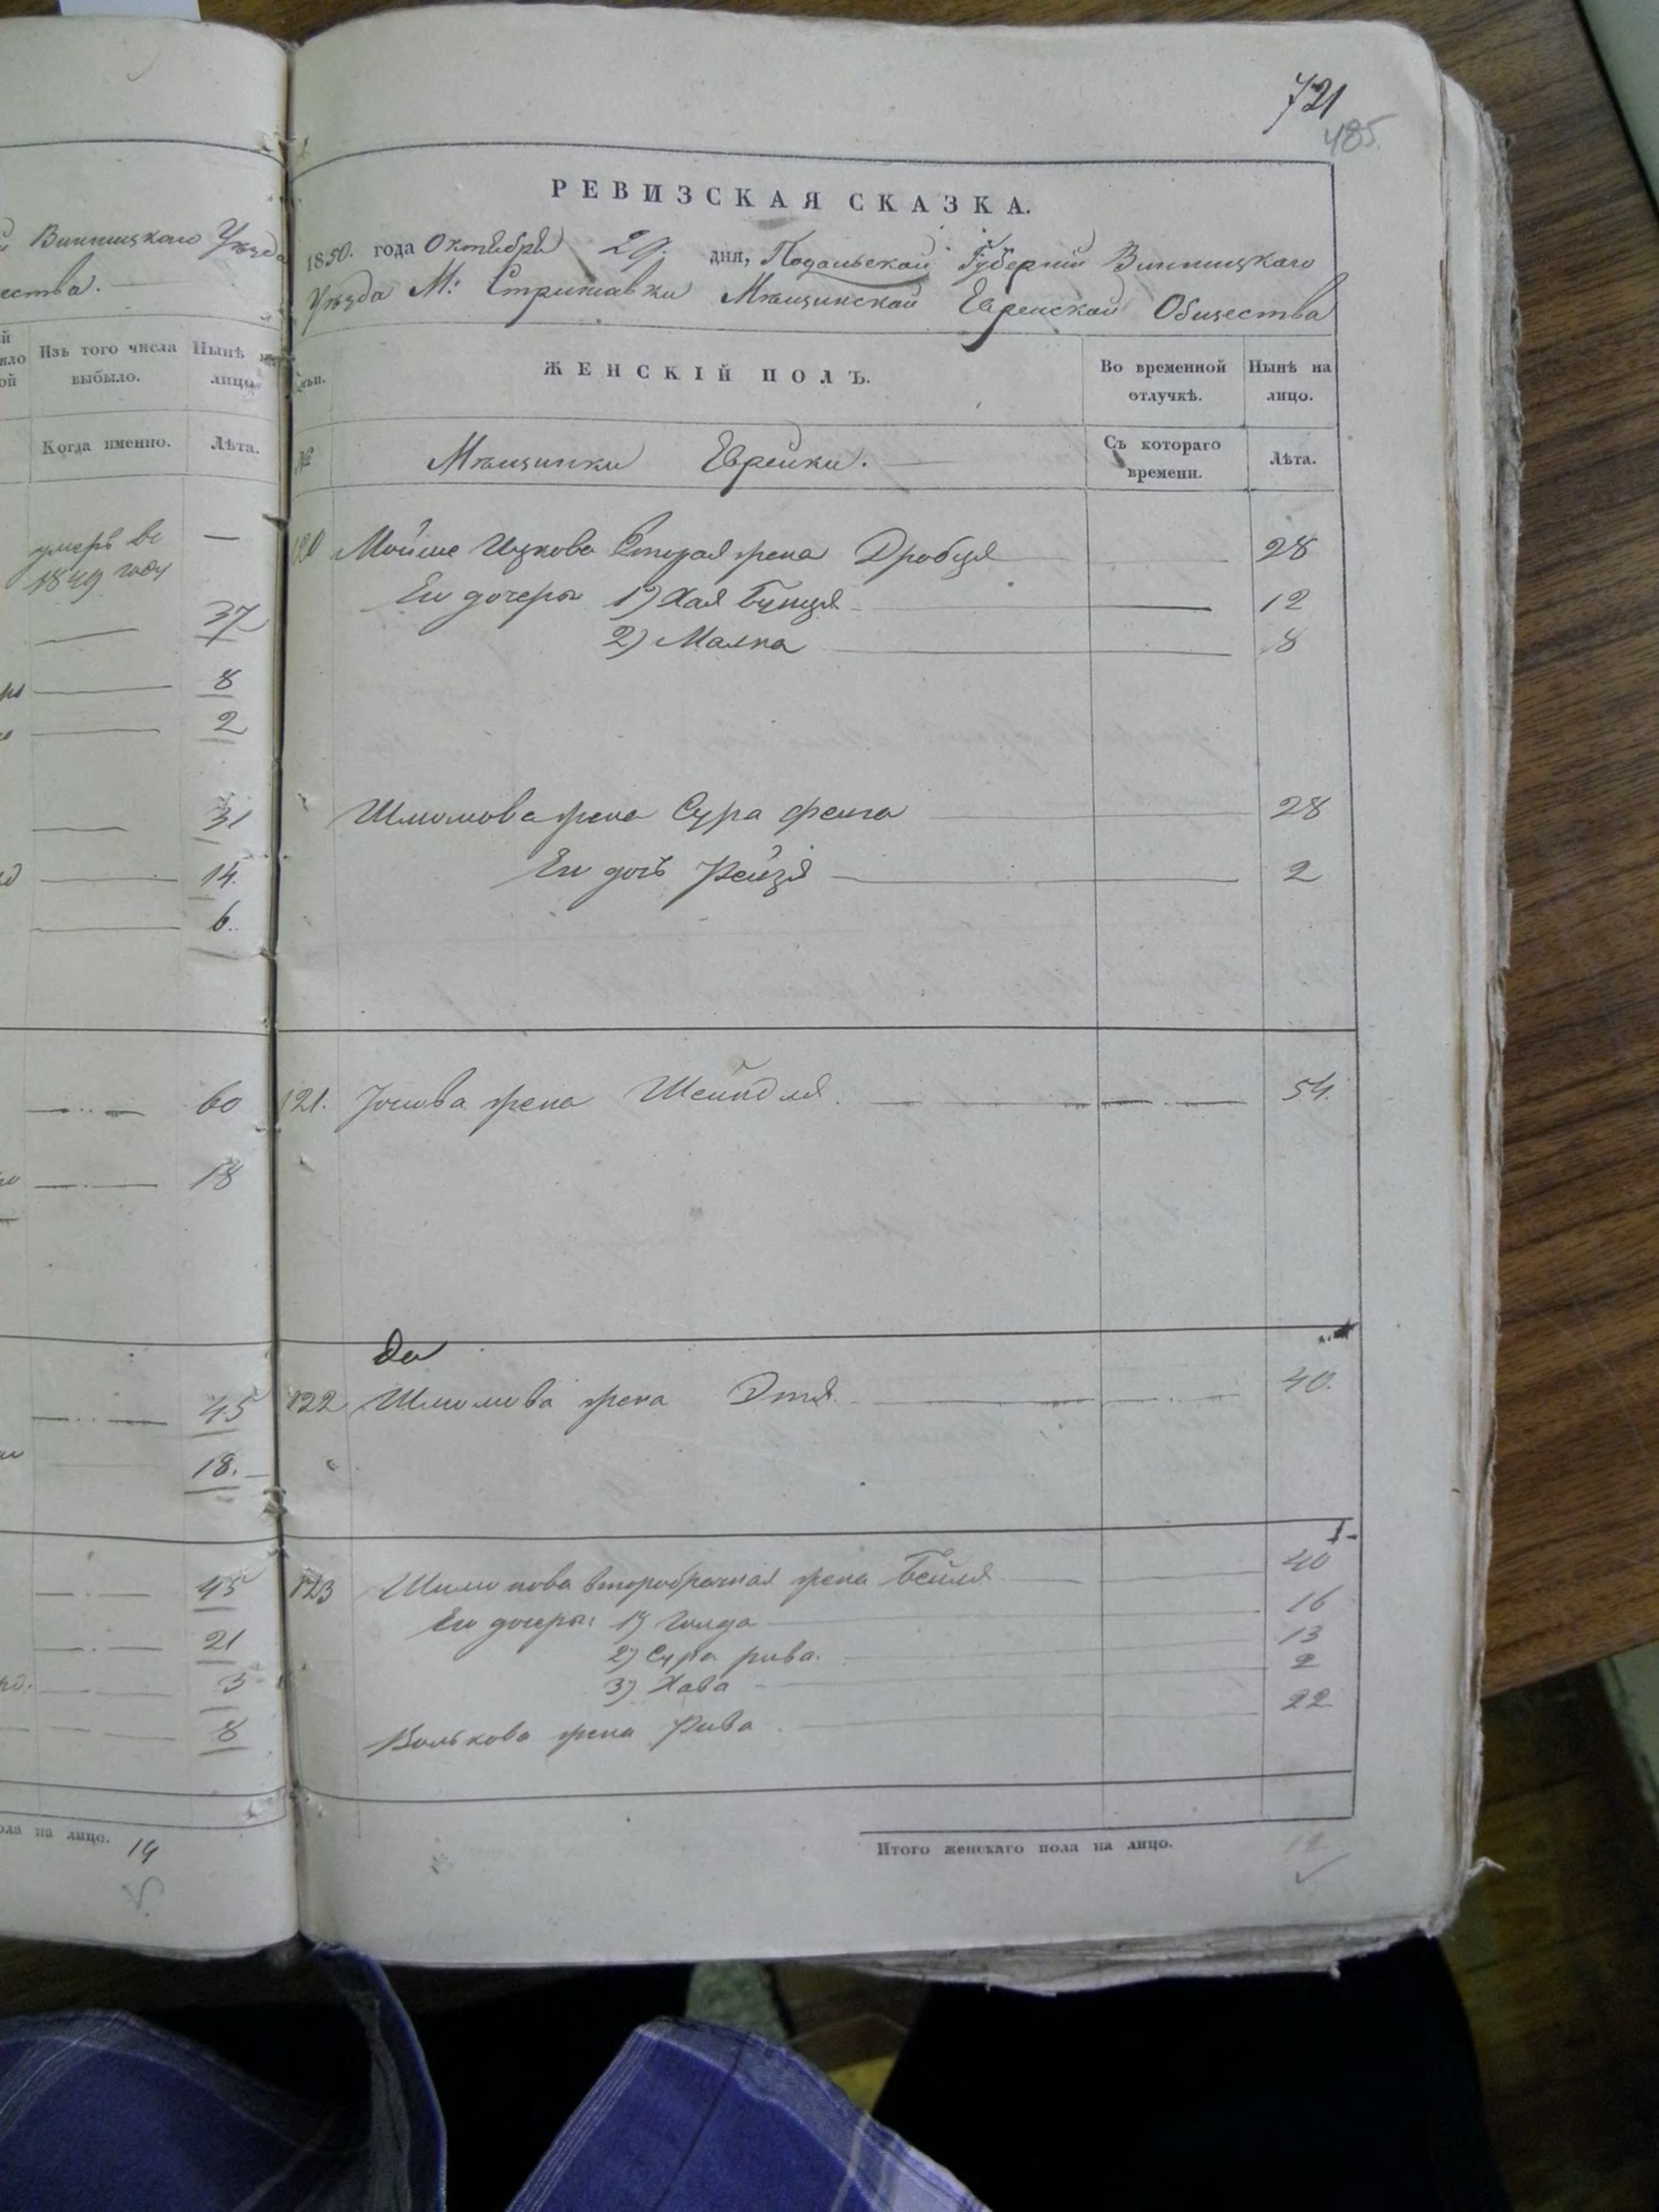 721
485.
РЕВИЗСКАЯ СКАЗКА.
1850. года Октября 29. дня, Подольской Губернии Винницкаго
Уѣзда М: Стрижавки Мѣщинской Еврейской Общества
ЖЕНСКІЙ ПОЛЪ.
Во временной отлучкѣ.
Нынѣ на лицо.
№
Мѣщинки Еврейки.
Съ котораго времени.
Лѣта.
120 Мойше Ицкова Вторая жена Дробця 28
Ей дочеры 1) Хая Бунця 12
2) Малка 8
Шломова жена Сура фейга 28
Ей дочь Рейзя 2
121. Іосиова жена Шейндля. 54.
122 Шломова жена Этя. 40.
123 Шимонова второбрачная жена Бейля 40
Его дочеры: 1) Голда 16
2) Сура рива. 13
3) Хава 2
Волькова жена Рива 22
Итого женскаго пола на лицо.
Винницкаго Уѣзда
ества.
Изъ того числа выбыло.
Нынѣ на лицо.
Когда именно.
Лѣта.
умеръ въ —
1849 году
37
8
2
31
14.
6.
60
18
45
18.
45
21
3
8
ола на лицо. 14